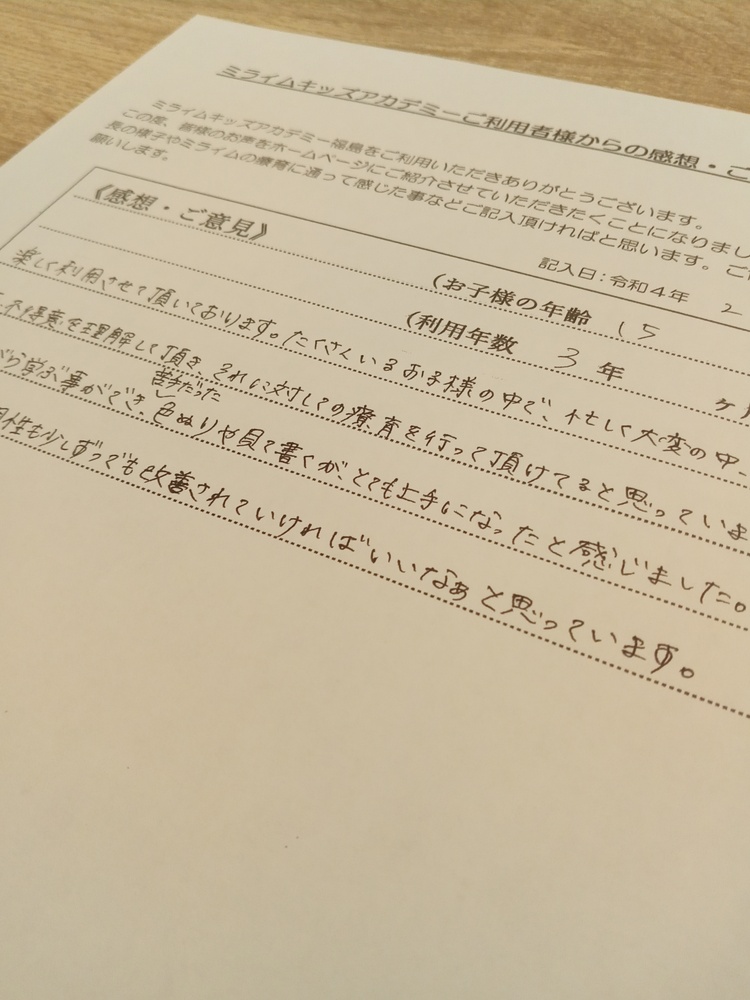 ミライムキッズアカデミーご利用者様からの感想・ご
ミライムキッズアカデミー福島をご利用いただきありがとうございます。
この度、皆様のお声をホームページにご紹介させていただきたくことになりまし
長の様子やミライムの療育に通って感じた事などご記入頂ければと思います。ご
願いします。
記入日:令和4年 2
《感想・ご意見》
(お子様の年齢 15
(利用年数 3年 ヶ月
楽しく利用させて頂いております。たくさんいるお子様の中で、忙しく大変の中、
不得意を理解して頂き、それに対しての療育を行って頂けてると思っていま
がら学ぶ事ができ、苦手だった色ぬりや見て書くが、とても上手になったと感じました。
性も少しずつでも改善されていければいいなぁと思っています。